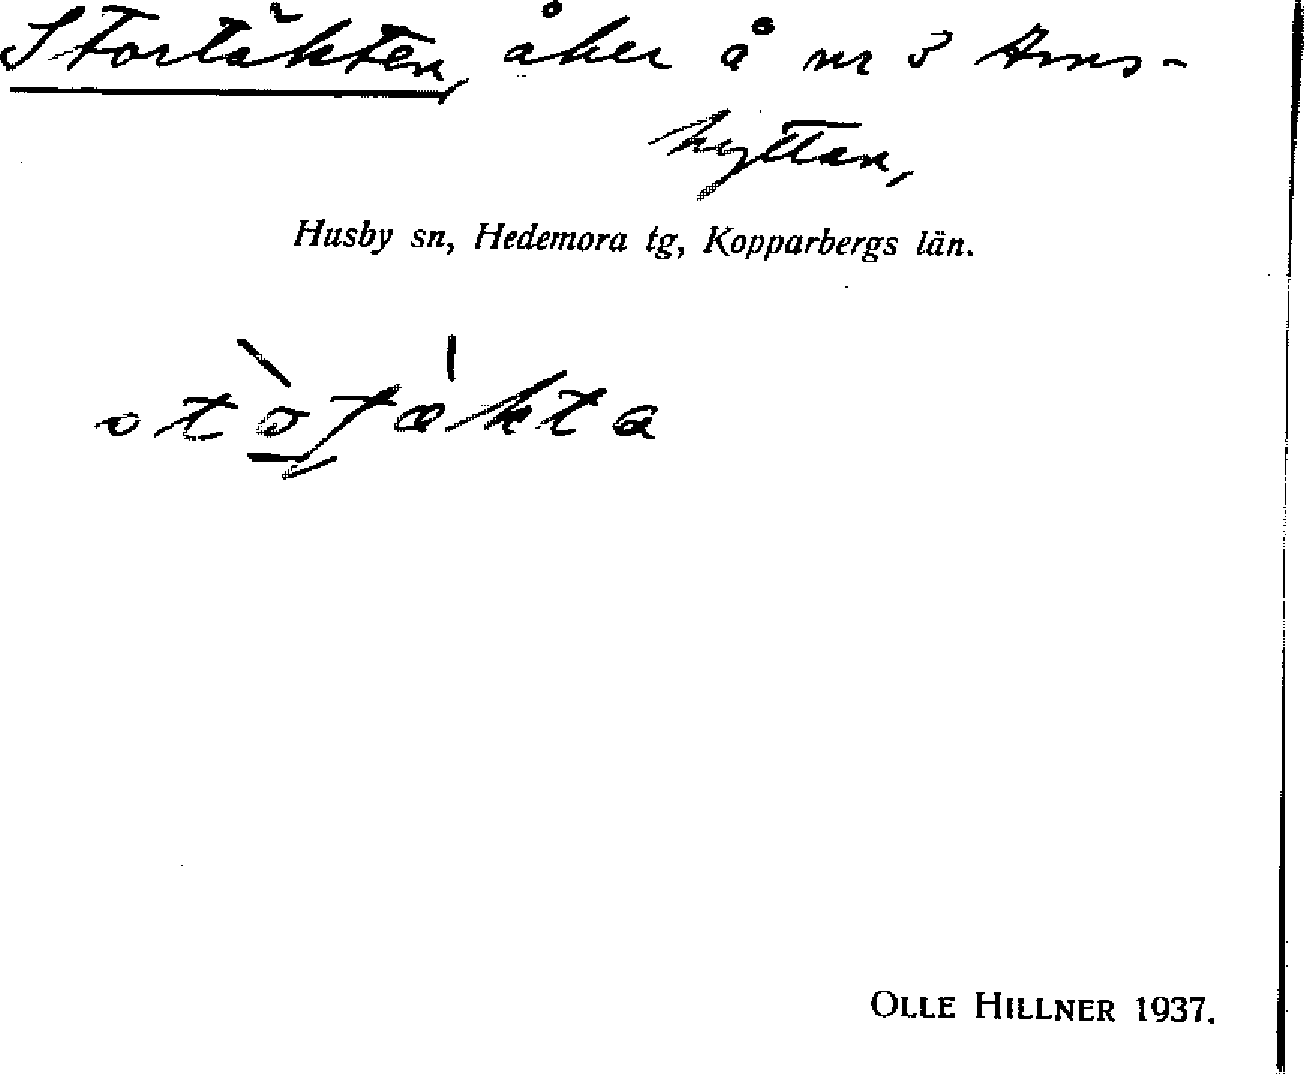 Stortäkten, åker å nr 3 Arns-
hyttan,
Husby sn, Hedemora tg, Kopparbergs län.
OLLE HILLNER 1937.